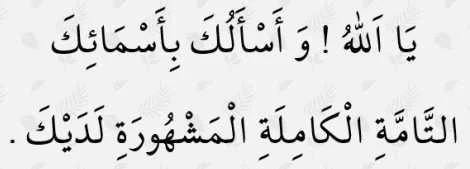 يَا اَللّٰهُ ! وَ أَسْأَلُكَ بِأَسْمَائِكَ
التَّامَّةِ الْكَامِلَةِ الْمَشْهُورَةِ لَدَيْكَ .